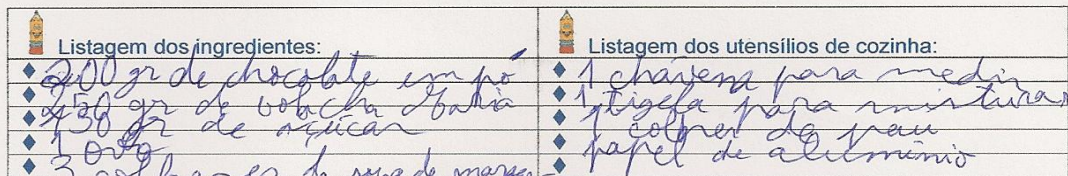 Listagem dos ingredientes:
200 gr de chocolate em pó
250 gr de bolacha Maria
150 gr de açúcar
1 ovo
3 de sopa de
Listagem dos utensílios de cozinha:
1 chávena para medir
1 tigela para misturar
1 colher de pau
papel de alumínio